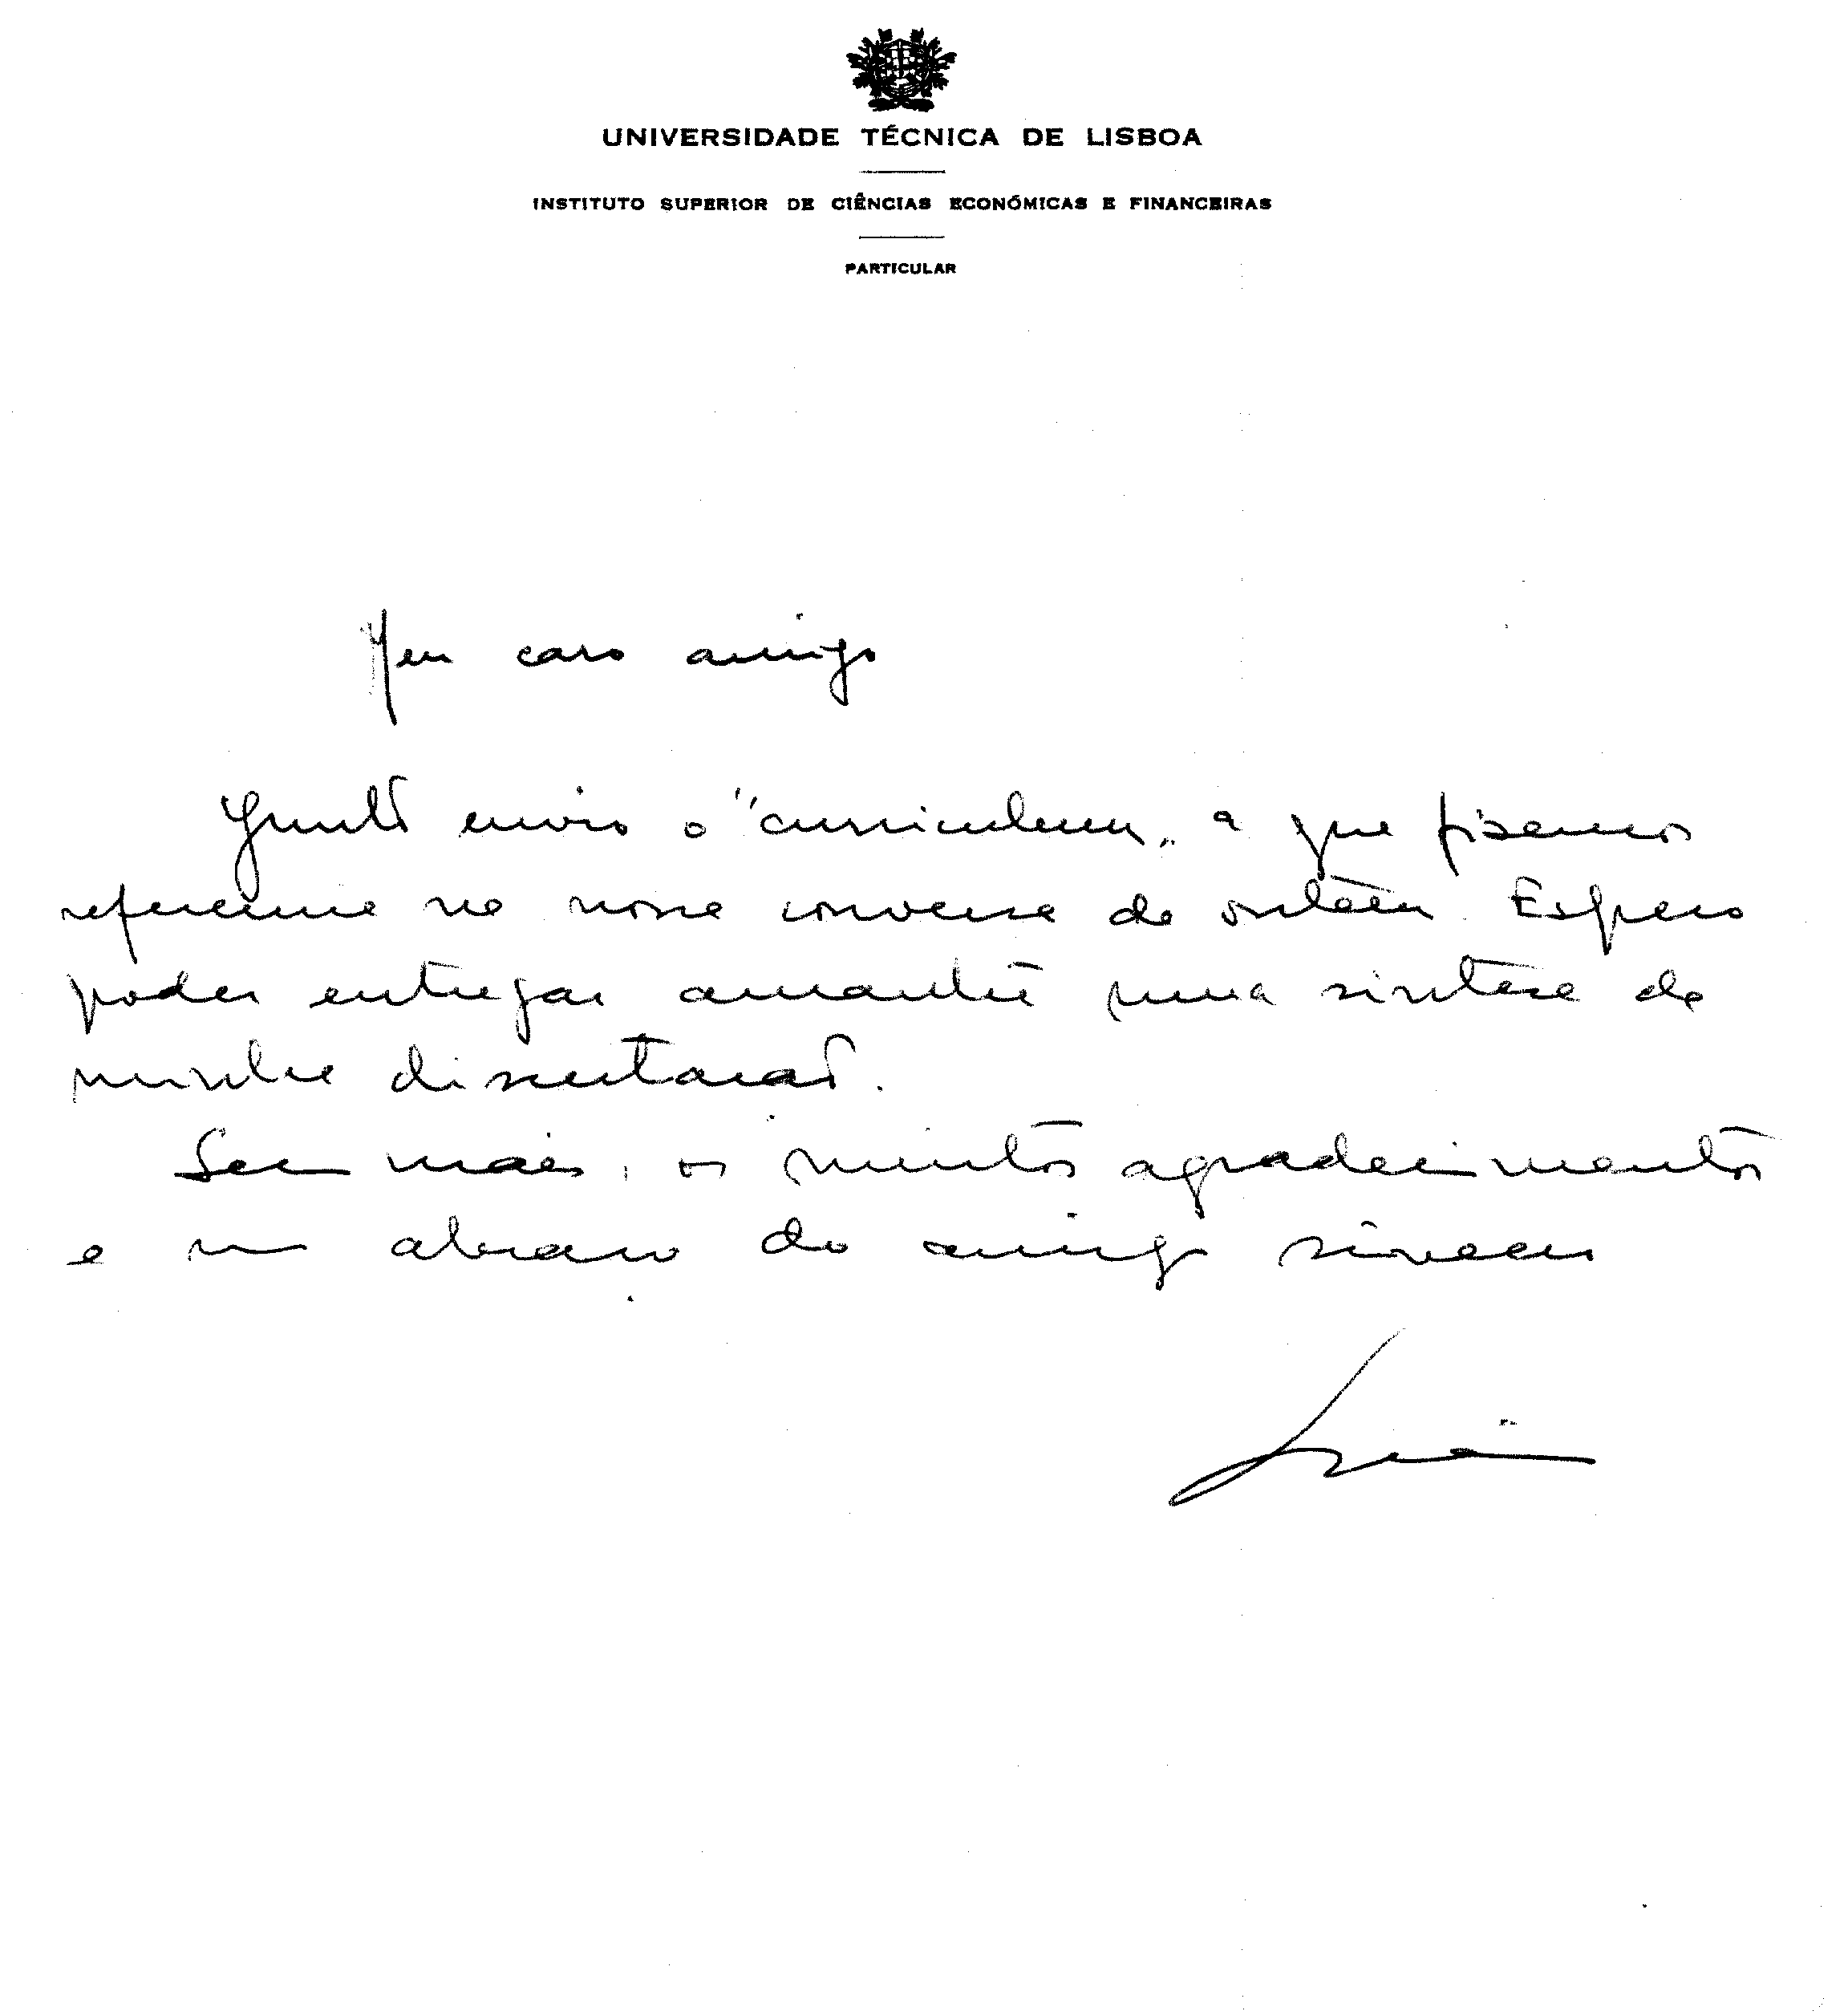 UNIVERSIDADE TÉCNICA DE LISBOA
INSTITUTO SUPERIOR DE CIÊNCIAS ECONÓMICAS E FINANCEIRAS
PARTICULAR
Meu caro amigo
Junto envio o "curriculum" a que fizemos
referência na nossa conversa de ontem. Espero
poder entregar amanhã uma síntese da
minha dissertação.
Sem mais, os muitos agradecimentos
e um abraço do amigo sincero